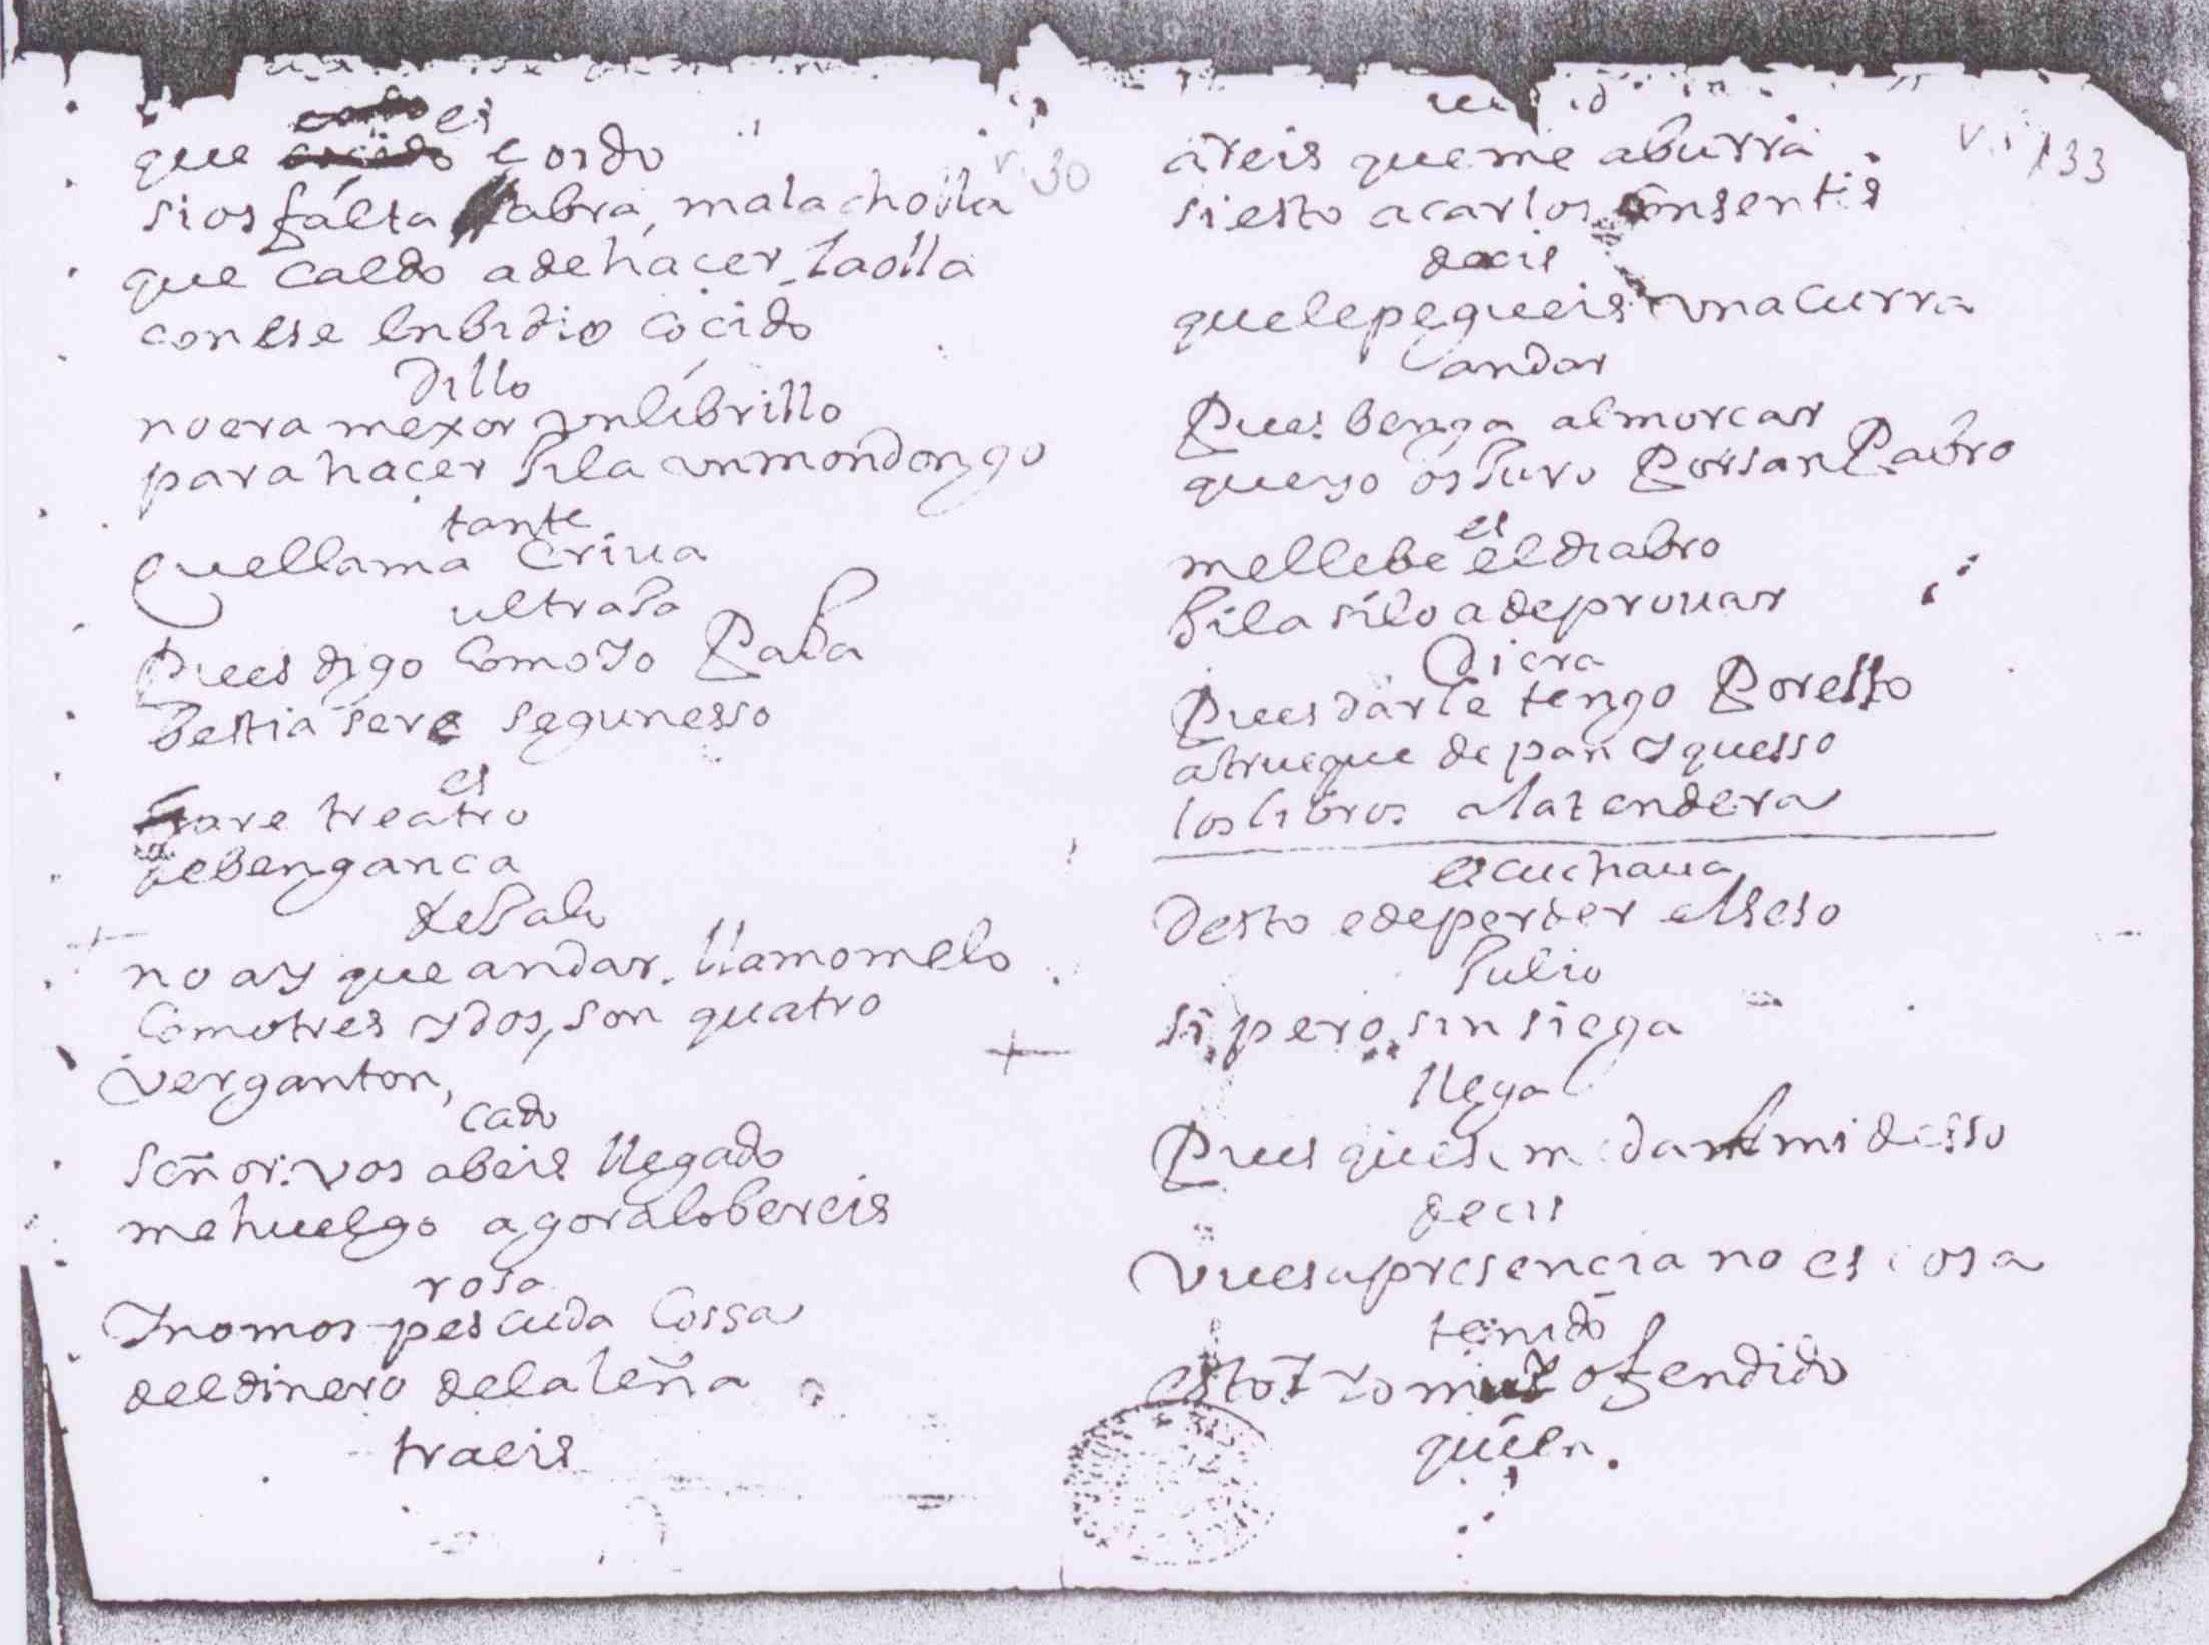 es
que eordo
sios falta abra, mala cholla
que caldo adehacer laolla
conese enbidio cocido
dillo
noera mexor vnlibrillo
parahacer Gila vnmondongo
tante
quellama criua
ultrasa
Pues digo como yo Pasa
bestia sere segunesso
es
treatro
bengança
deSalo
no ay que andar. llamomelo
comotres ydos, son quatro
verganton,
cado
señor. vos abeis llegado
mehuelgo agoralobereis
rosa
Ynomos pescuda cossa
deldinero delaleña
traeis
v. 30
areis queme aburra
siesto acarlos consentis
decis
quelepegueis vnacurra
andar
Pues benga almorcar
queyo osJuro PorsanPabro
es
mellebe eldiabro
Gila silo adeprouar
diera
Pues darle tengo Poresto
atrueque de pan y quesso
loslibros alatendera
escuchaua
Desto edeperder elseso
Julio
si, pero, sin siega
llega
Pues midesso
decis
vuesapresencia no es cosa
tenido
estoy yo muy ofendido
quien.
133